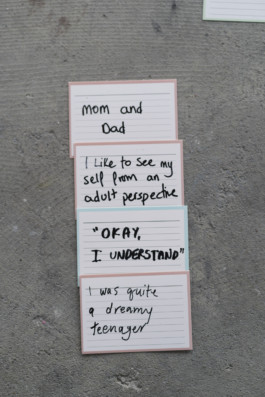 mom and
Dad
I Like to see my
self from an
adult perspective
"OKAY,
I UNDERSTAND"
I was quite
a dreamy
teenager